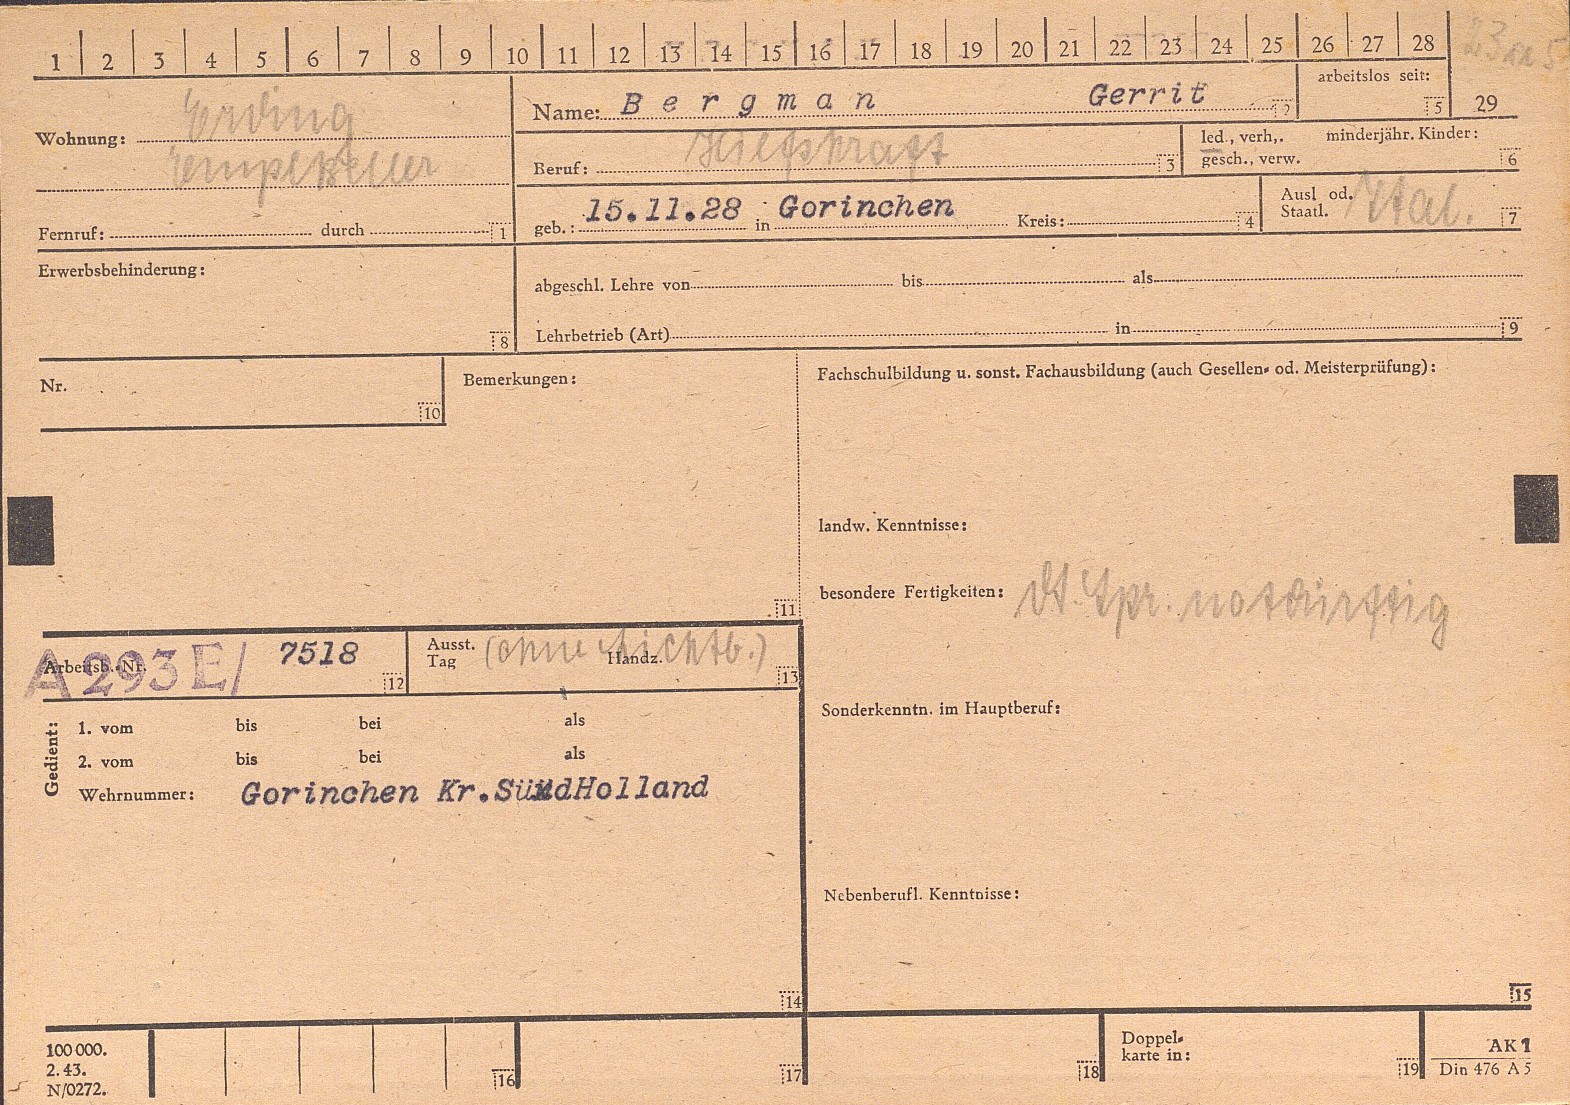 1 2 3 4 5 6 7 8 9 10 11 12 13 14 15 16 17 18 19 20 21 22 23 24 25 26 27 28
Wohnung: Erding
Fernruf: durch 1
Name: Bergman Gerrit 2
arbeitslos seit: 5
29
Beruf: Hilfskraft 3
led., verh,. minderjähr. Kinder:
gesch., verw. 6
geb.: 15.11.28 in Gorinchen Kreis: 4
Ausl od.
Staatl. Ital. 7
Erwerbsbehinderung:
8
abgeschl. Lehre von bis als
Lehrbetrieb (Art) in 9
Nr.
10
Bemerkungen:
11
Fachschulbildung u. sonst. Fachausbildung (auch Gesellen- od. Meisterprüfung):
landw. Kenntnisse:
besondere Fertigkeiten: dt. Spr. notdürftig
Sonderkenntn. im Hauptberuf:
Nebenberufl. Kenntnisse:
15
Arbeitsb.-Nr. A 293 E/ 7518 12
Ausst. (ohne Lichtb.)
Tag Handz. 13
Gedient:
1. vom bis bei als
2. vom bis bei als
Wehrnummer: Gorinchen Kr. SüdHolland
14
100 000.
2. 43.
N/0272.
16
17
18
Doppel-
karte in:
19
AK 1
Din 476 A 5